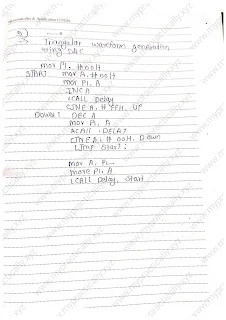 3)
Triangular waveform generation
using DAC
mov P1, #00H
START: mov A, #00H
mov P1, A
INC A
LCALL Delay
CJNE A, #FFH, UP
Down: DEC A
mov P1, A
ACALL DELAY
CJNE A, #00H, Down
LJmp Start:
mov A, P1
move P1, A
LCALL Delay, Start